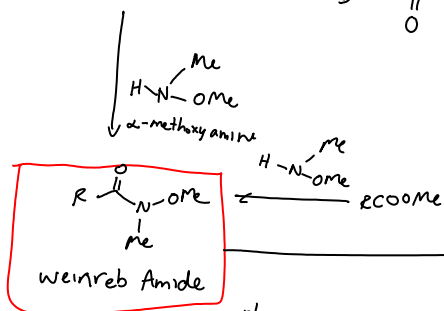 O
Me
H-N-OMe
α-methoxyamine
Me
H-N-OMe
O
R N-OMe
RCOOMe
Me
Weinreb Amide